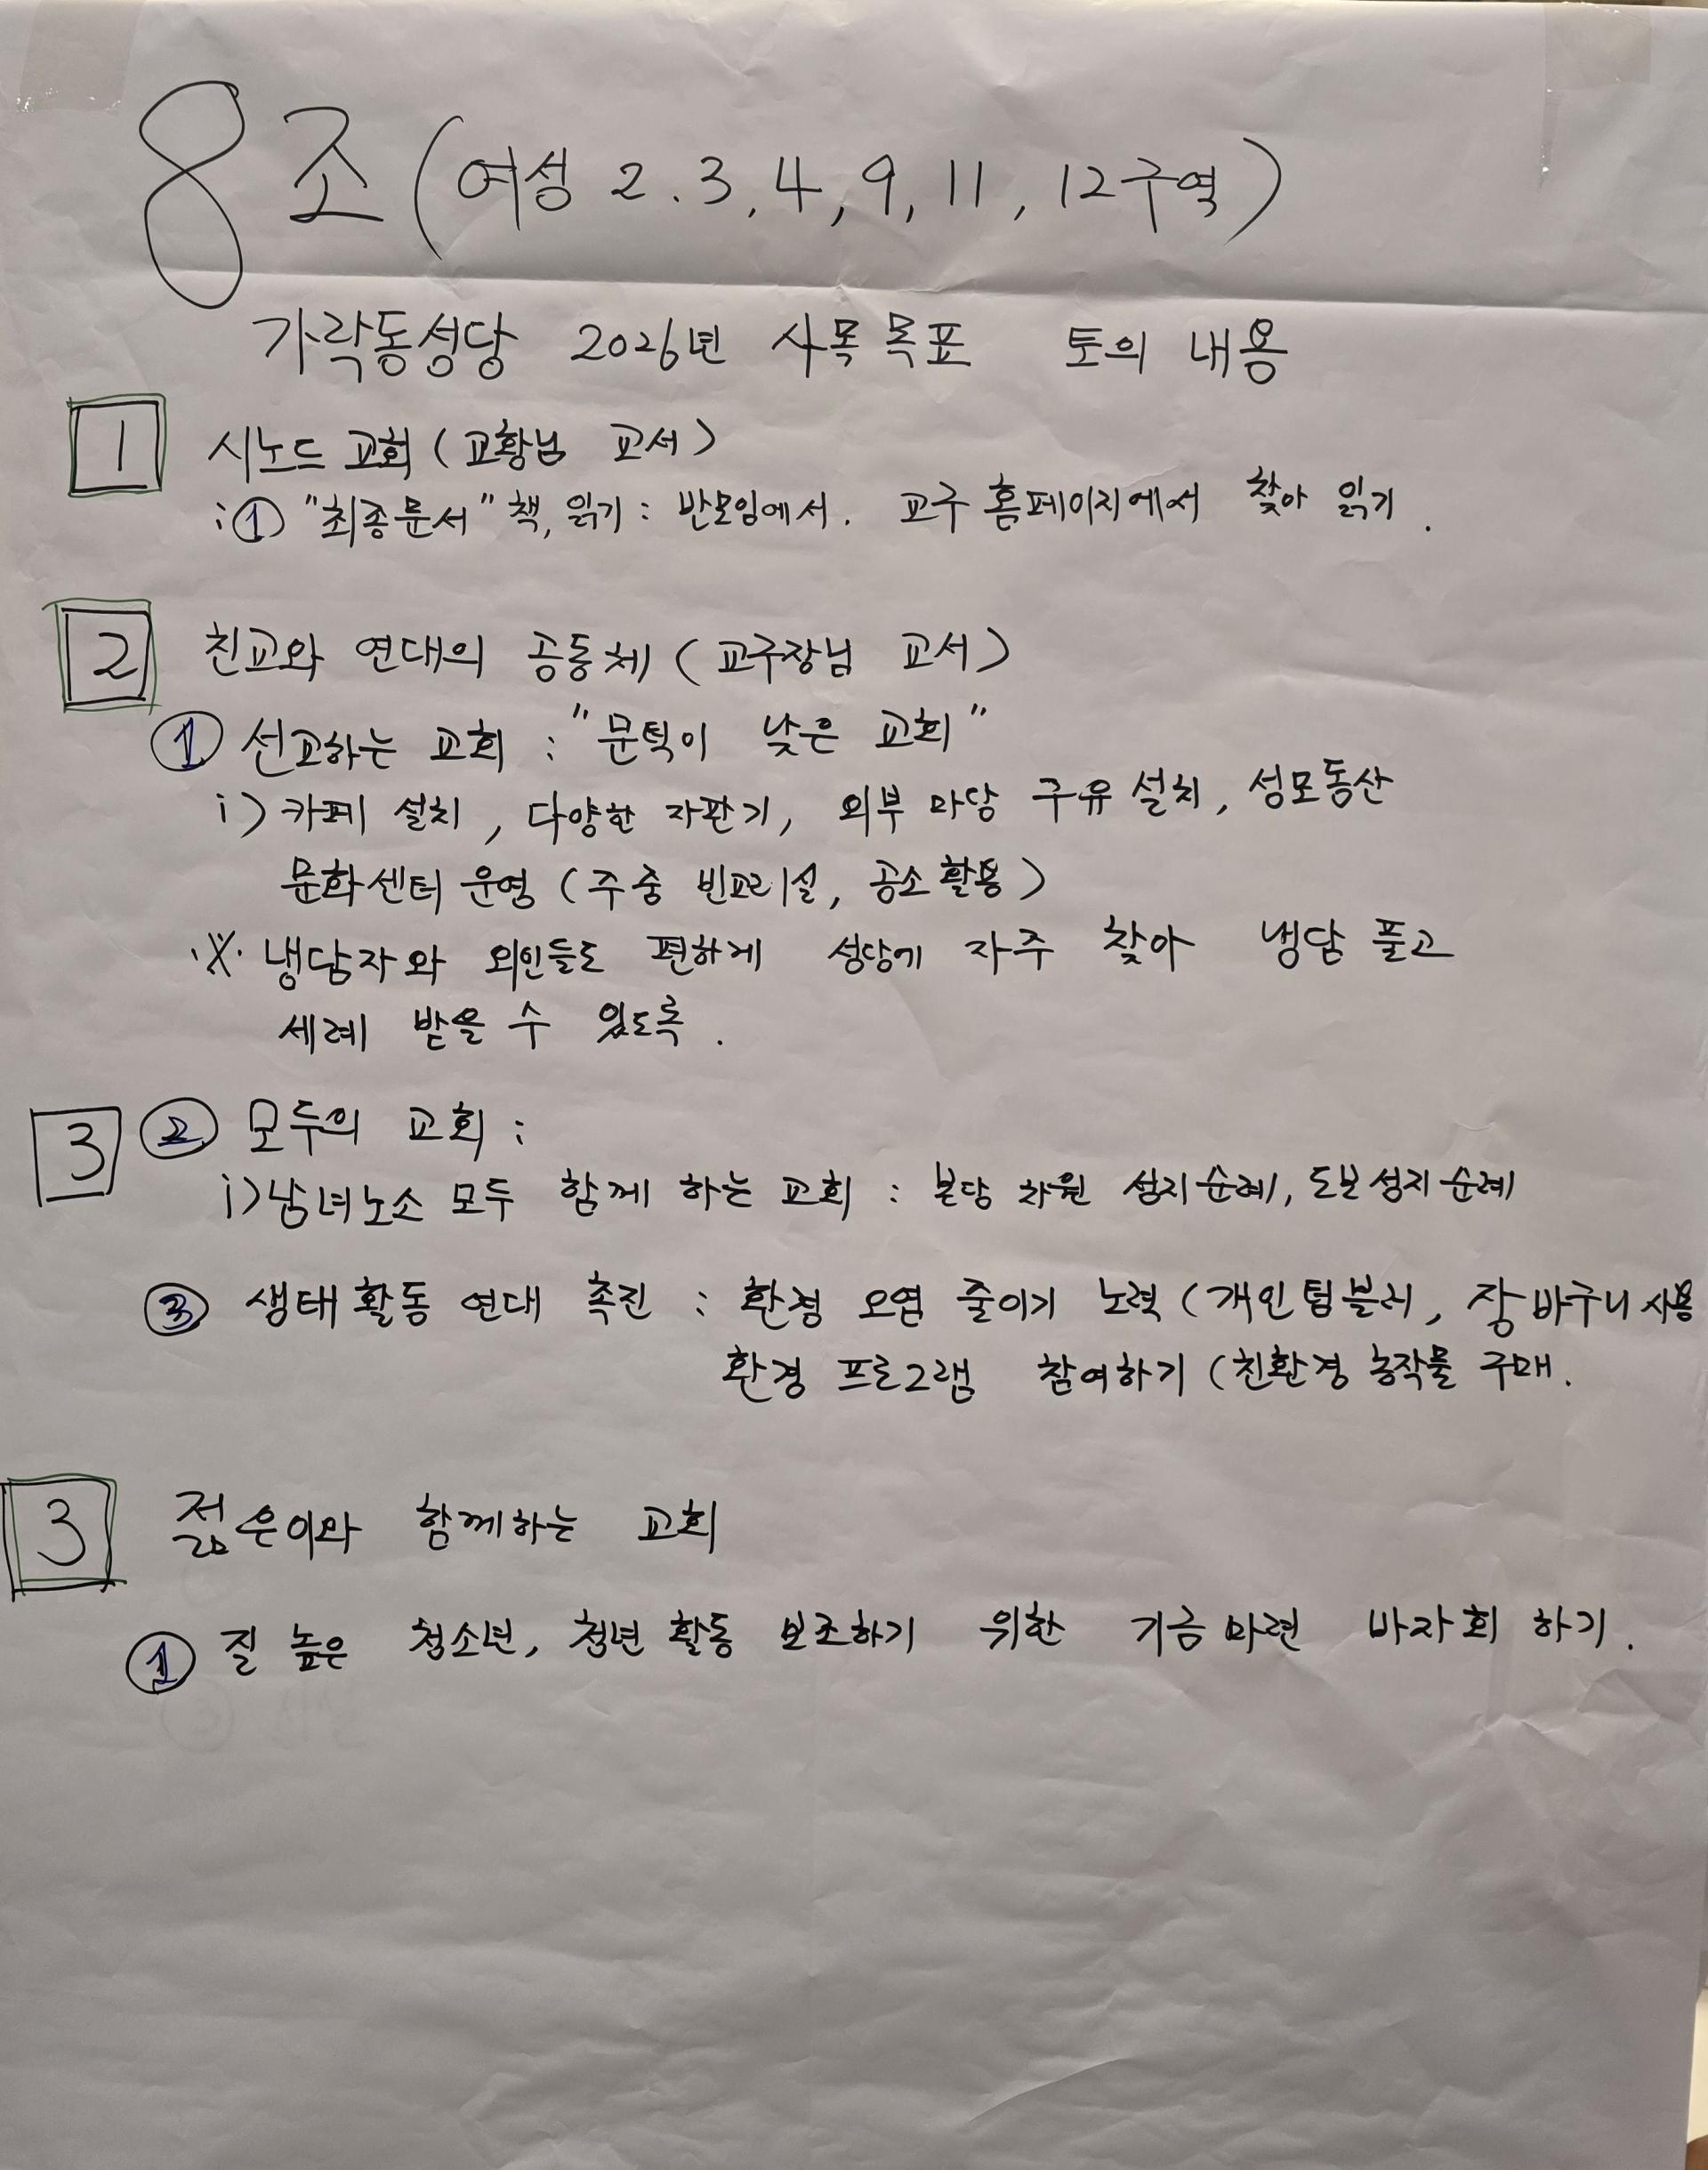 8조 (여성 2. 3, 4, 9, 11, 12구역)
가락동성당 2026년 사목목표 토의 내용
1 시노드 교회 (교황님 교서)
: ① "최종문서" 책, 읽기 : 반모임에서. 교구 홈페이지에서 찾아 읽기.
2 친교와 연대의 공동체 (교구장님 교서)
① 선교하는 교회 : "문턱이 낮은 교회"
i) 카페 설치, 다양한 자판기, 외부 마당 구유 설치, 성모동산
문화센터 운영 (주중 빈교리실, 공소 활용)
※ 냉담자와 외인들도 편하게 성당에 자주 찾아 냉담 풀고
세례 받을 수 있도록.
3 ② 모두의 교회 :
i) 남녀노소 모두 함께 하는 교회 : 본당 차원 성지순례, 도보성지순례
③ 생태활동 연대 촉진 : 환경 오염 줄이기 노력 (개인텀블러, 장바구니 사용
환경 프로그램 참여하기 (친환경 농작물 구매.
3 젊은이와 함께하는 교회
① 질 높은 청소년, 청년 활동 보조하기 위한 기금마련 바자회 하기.